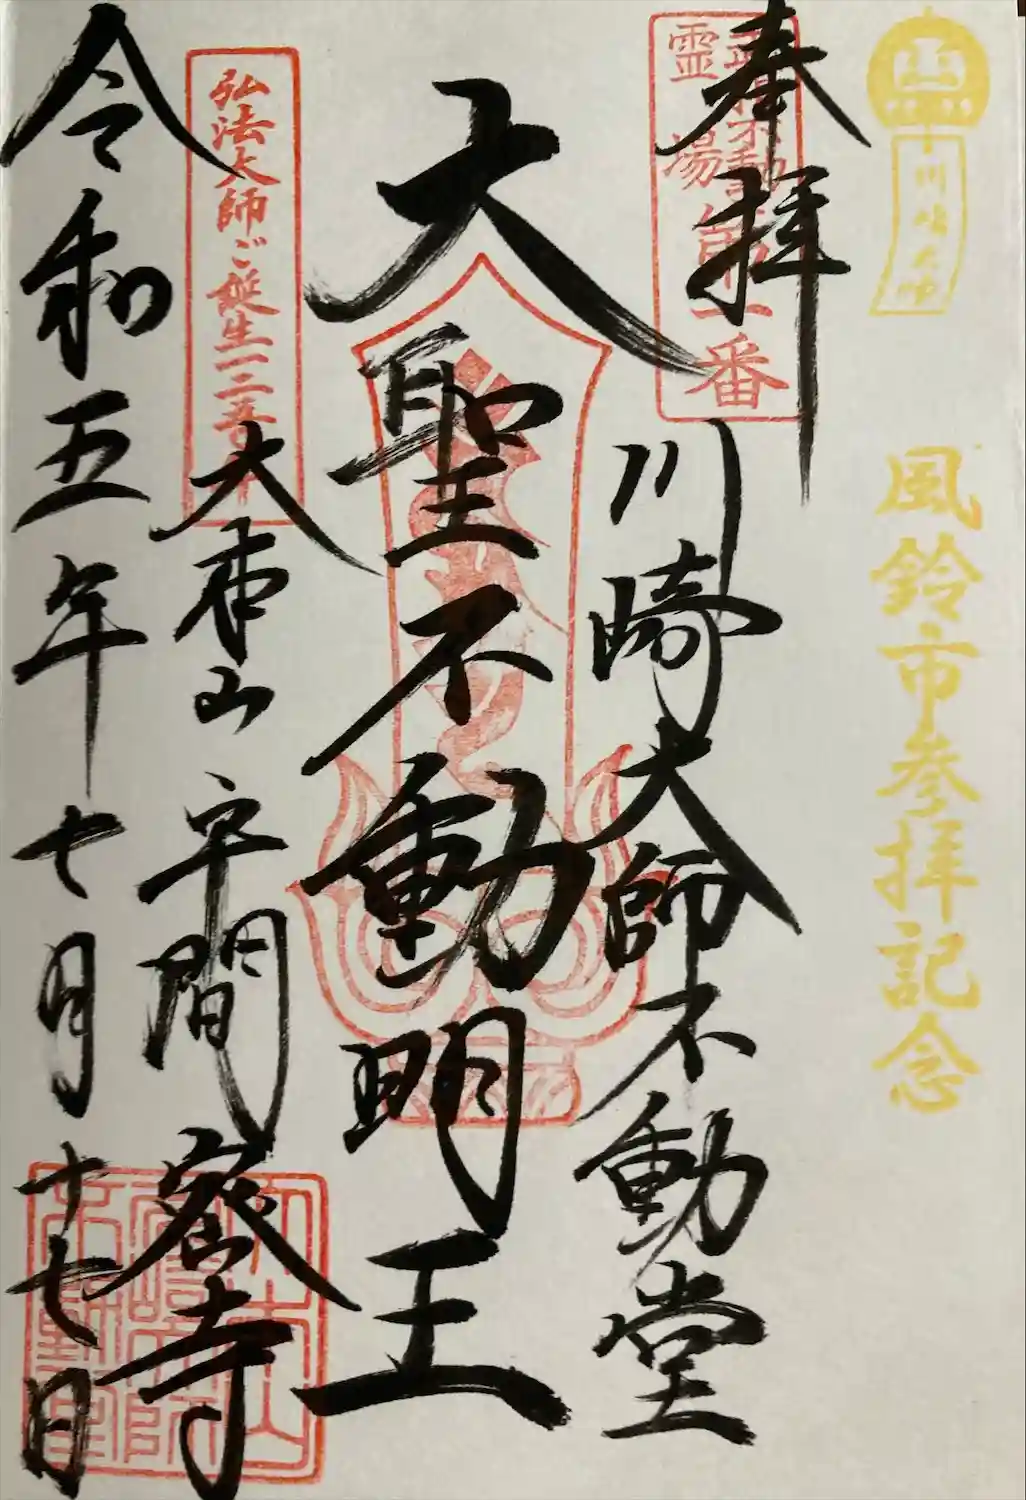 川崎大師
風鈴市参拝記念
奉拝
霊場
番
川崎大師不動堂
大聖不動明王
弘法大師ご誕生一二五
大本山平間密寺
令和五年七月十七日